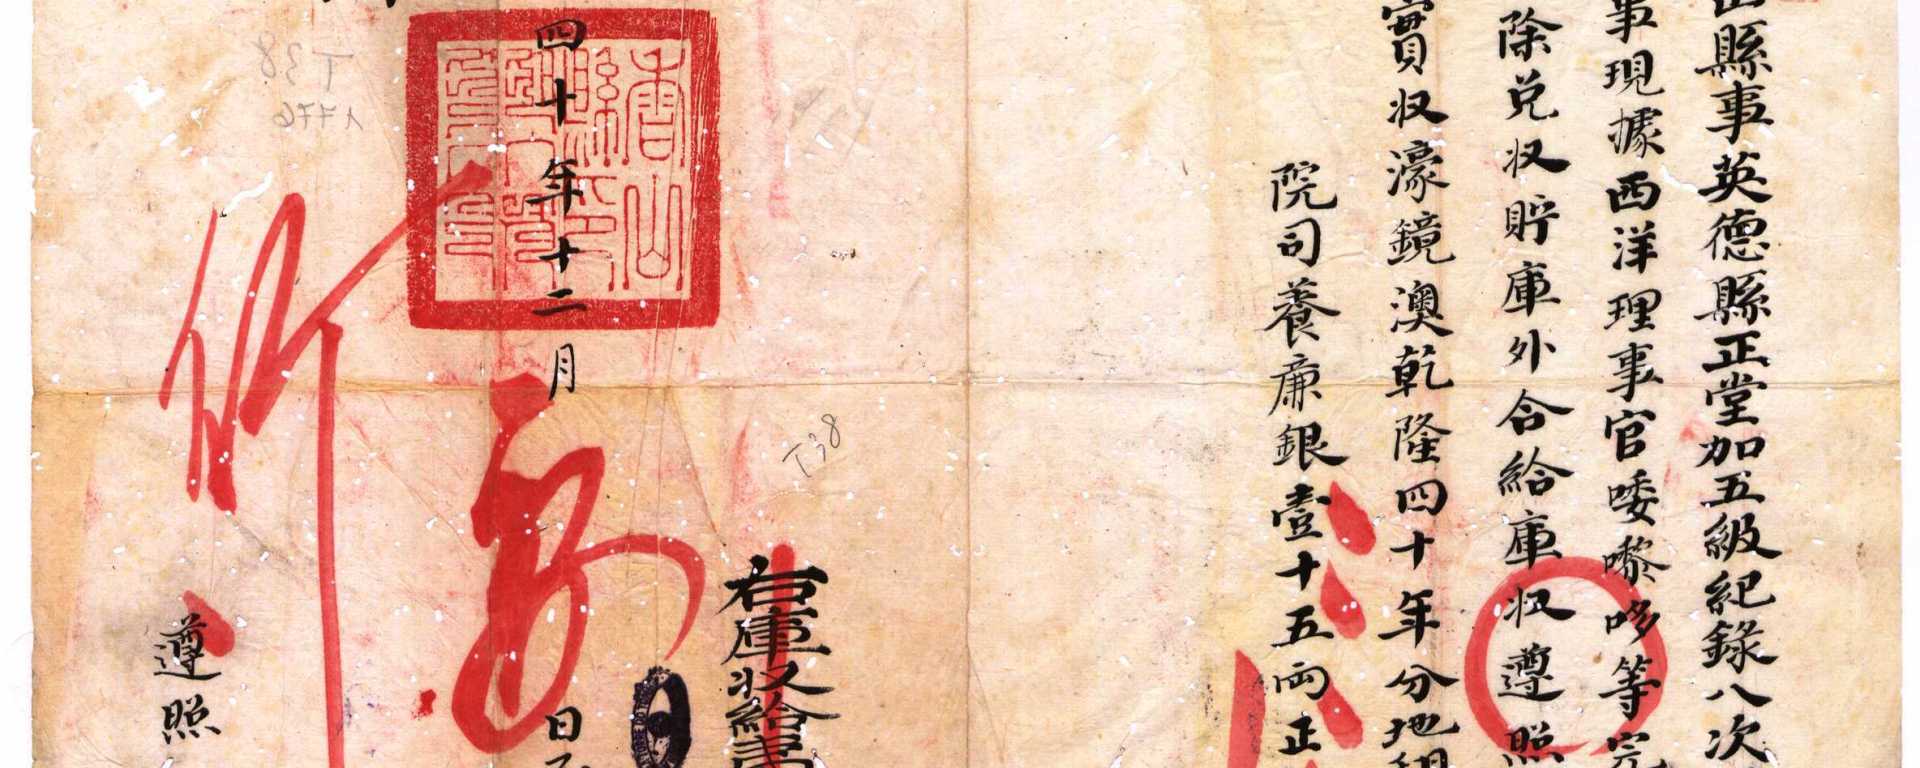 縣事英德縣正堂加五級紀錄八次
事現據西洋理事官喽嚟哆等完
除兌収貯庫外合給庫収遵照
實収濠鏡澳乾隆四十年分地租
院司養廉銀壹十五両正
右庫収給
四十年十二月
日
遵照
香山縣印
T38
T38
1776